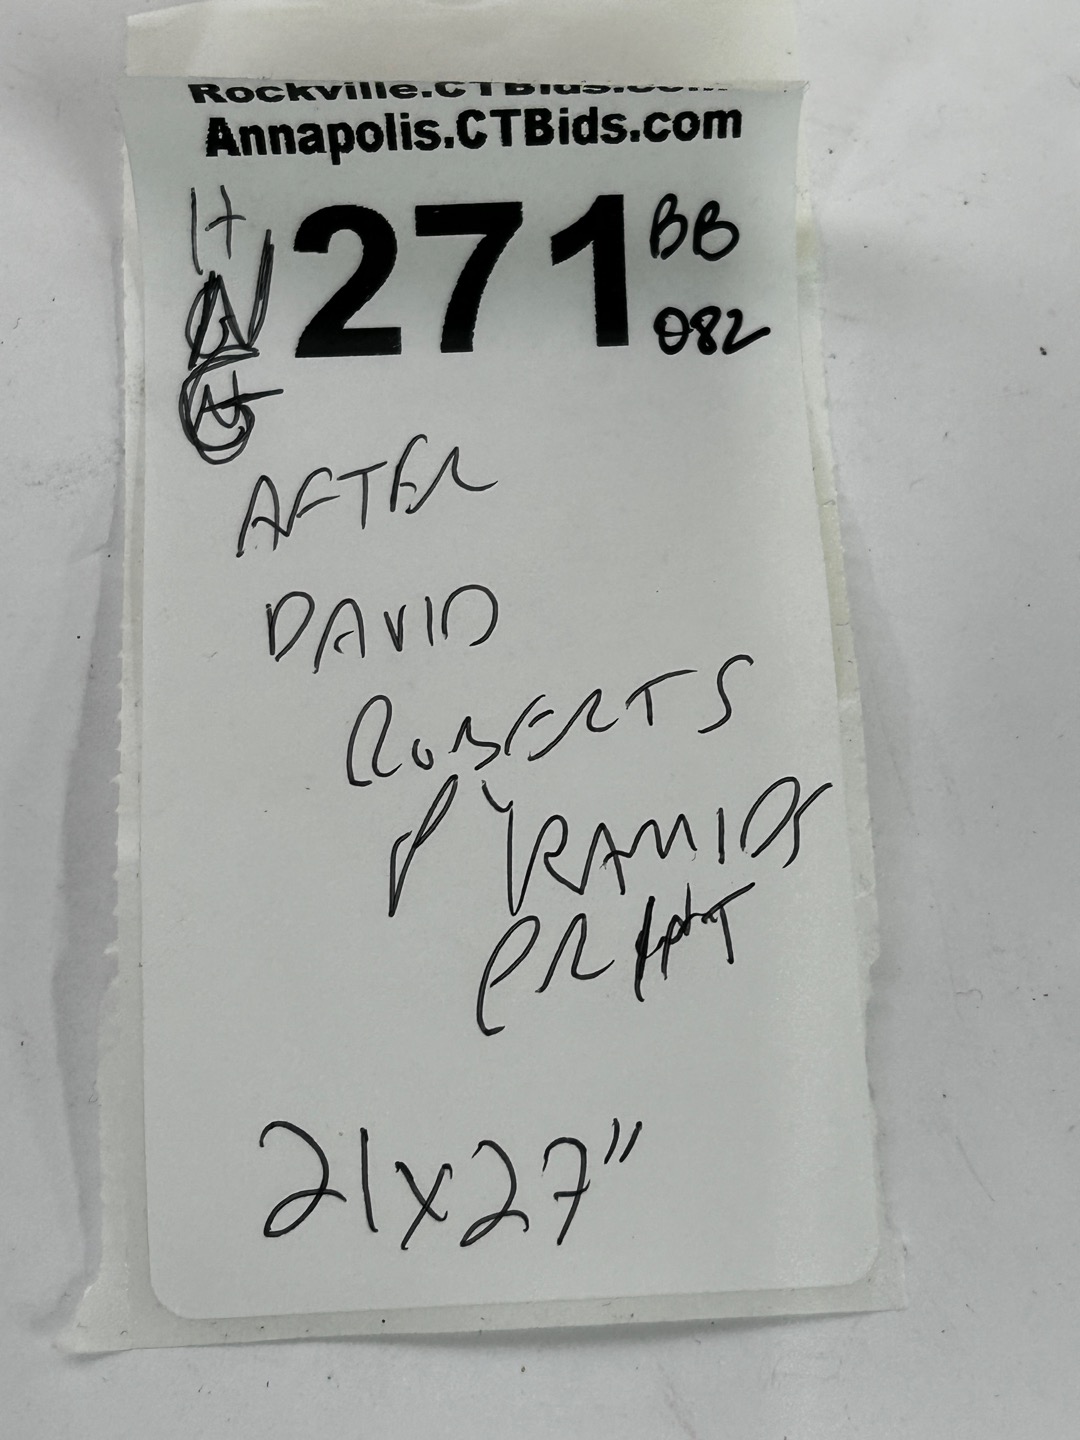 Rockville.CTBids.com
Annapolis.CTBids.com
H 271 BB
082
AFTER
DAVID
ROBERTS
PYRAMIDS
21x27"